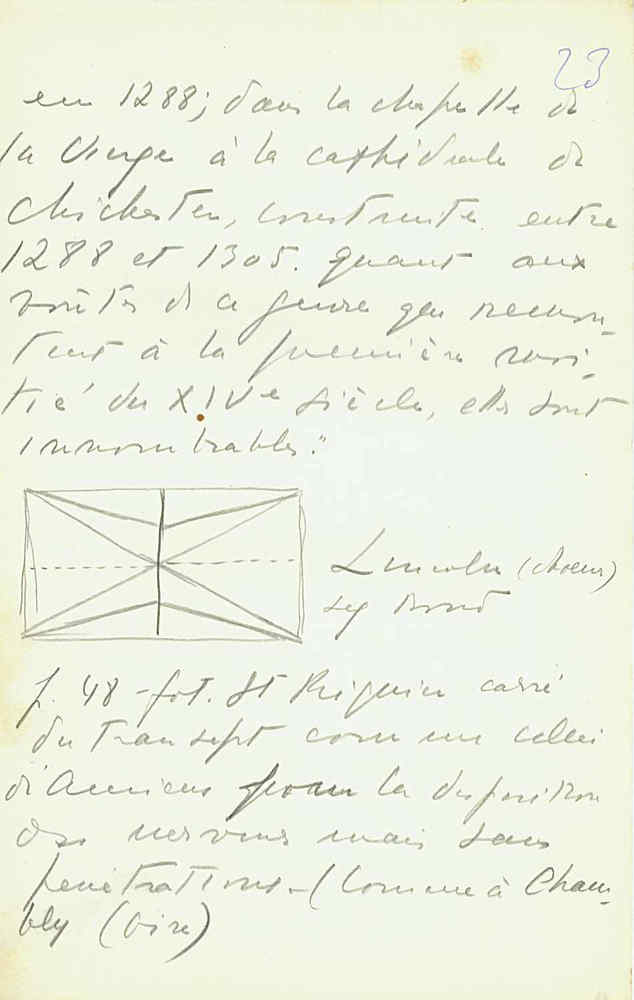 23
en 1288; dans la chapelle de
la Vierge à la cathédrale de
Chichester, construite entre
1288 et 1305. Quant aux
voûtes de ce genre qui remon-
tent à la première moi-
tié du XIVe siècle, elles sont
innombrables."
Lincoln (chœur)
sq Bond
p. 48 - fot. St Riquier carré
du transept comme celui
d'Amiens pour la disposition
des nervures mais sans
pénétrations - (Comme à Cham-
bly (Oise)